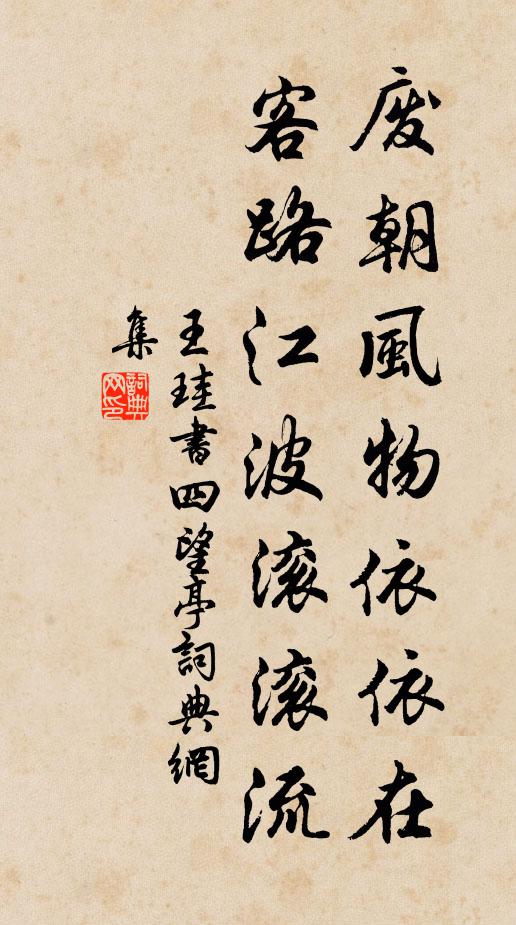 废朝風物依依在
客路江波滚滚流
王珪書四望亭詞典網
集
詞典
网印